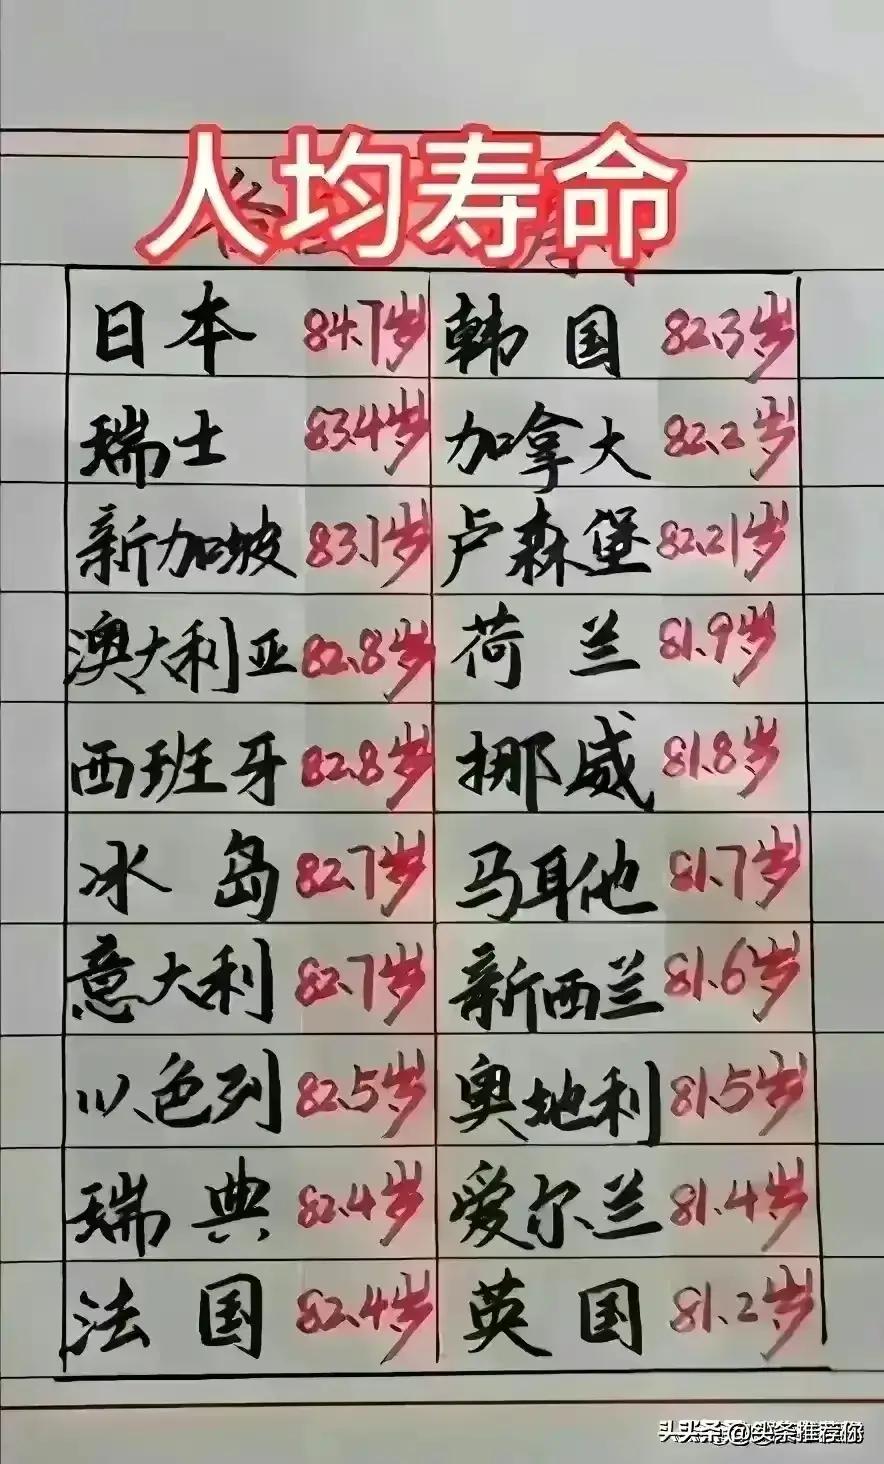 人均寿命
日本 84.7岁 韩国 82.3岁
瑞士 83.4岁 加拿大 82.2岁
新加坡 83.1岁 卢森堡 82.21岁
澳大利亚 82.8岁 荷兰 81.9岁
西班牙 82.8岁 挪威 81.8岁
冰岛 82.7岁 马耳他 81.7岁
意大利 82.7岁 新西兰 81.6岁
以色列 82.5岁 奥地利 81.5岁
瑞典 82.4岁 爱尔兰 81.4岁
法国 82.4岁 英国 81.2岁
头条@头条推荐你